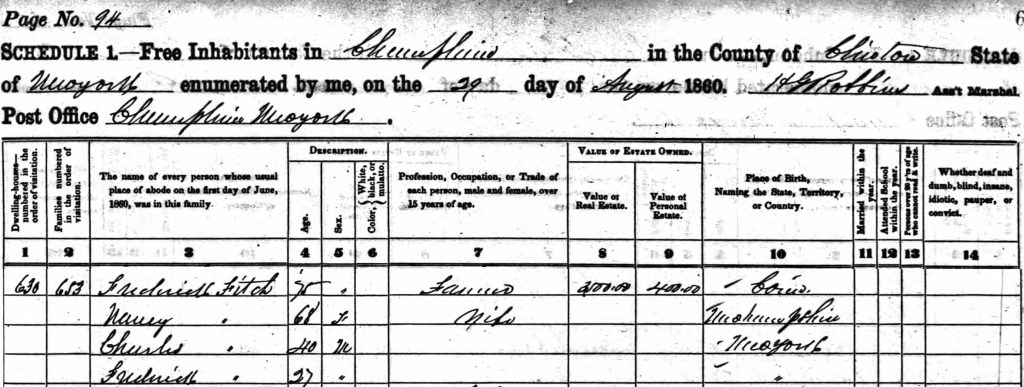 Page No. 94
6
SCHEDULE 1.—Free Inhabitants in Champlain in the County of Clinton State
of New York enumerated by me, on the 29 day of August 1860. Robbins Ass't Marshal.
Post Office Champlain New York.
Dwelling-house—numbered in the order of visitation.
Families numbered in the order of visitation.
The name of every person whose usual place of abode on the first day of June, 1860, was in this family.
DESCRIPTION.
Age.
Sex.
Color, White, black, or mulatto.
Profession, Occupation, or Trade of each person, male and female, over 15 years of age.
VALUE OF ESTATE OWNED.
Value of Real Estate.
Value of Personal Estate.
Place of Birth, Naming the State, Territory, or Country.
Married within the year.
Attended School within the year.
Persons over 20 y'rs of age who cannot read & write.
Whether deaf and dumb, blind, insane, idiotic, pauper, or convict.
1 2 3 4 5 6 7 8 9 10 11 12 13 14
630 653 Frederick Fitch 75 " Farmer 400.00 " Conn.
Nancy " 68 F Wife N Hampshire
Charles " 40 M " New York
Frederick " 27 " "